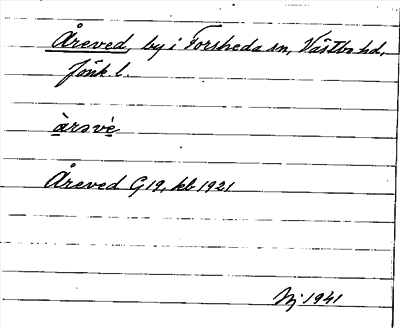 Åreved, by i Forsheda sn, Västbo hd,
Jönk l.
àrəvè
Åreved G19, kb 1921
Nj. 1941